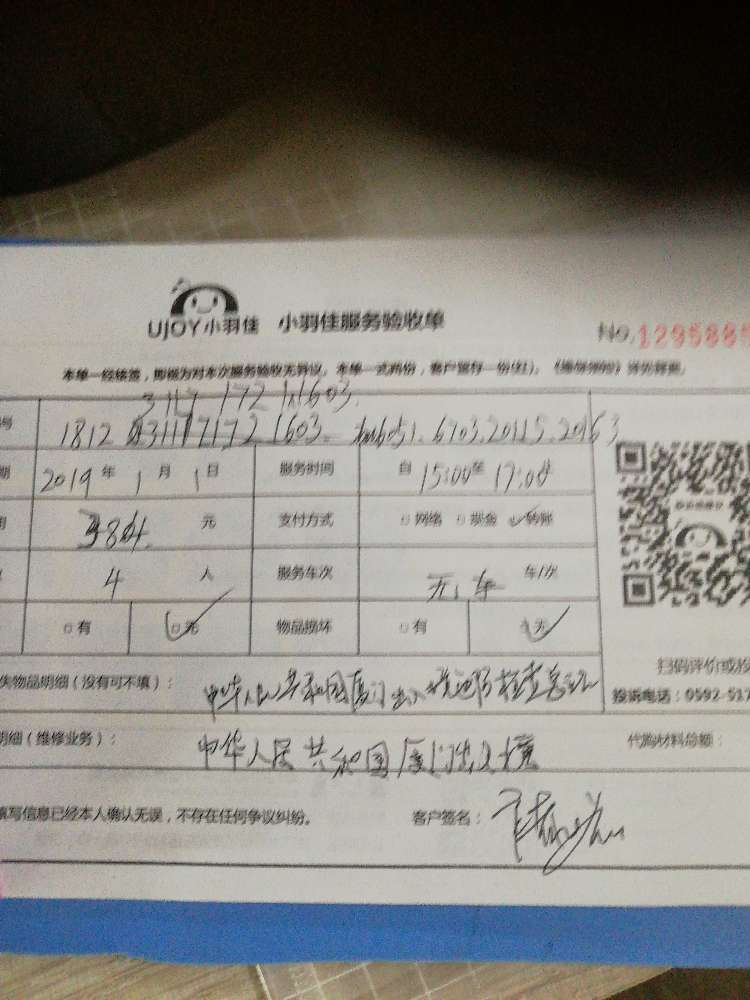 UJOY小羽佳 小羽佳服务验收单 No.1295885
本单一经核签，即视为对本次服务验收无异议。本单一式两份，客户留存一份(红)。
3117 172 1603
号 1812 3117172 1603 6703.20115.20163
期 2019 年 1 月 1 日 服务时间 自 15:00 至 17:00
元 支付方式 □网络 □现金 ✓转账
4 人 服务车次 无 车 车/次
□有 □无 物品损坏 □有 无
扫码评价或投
失物品明细（没有可不填）： 中华人民共和国厦门出入境边防检查总站 投诉电话：0592-517
明细（维修业务）： 中华人民共和国厦门出入境 代购材料总额：
填写信息已经本人确认无误，不存在任何争议纠纷。 客户签名：